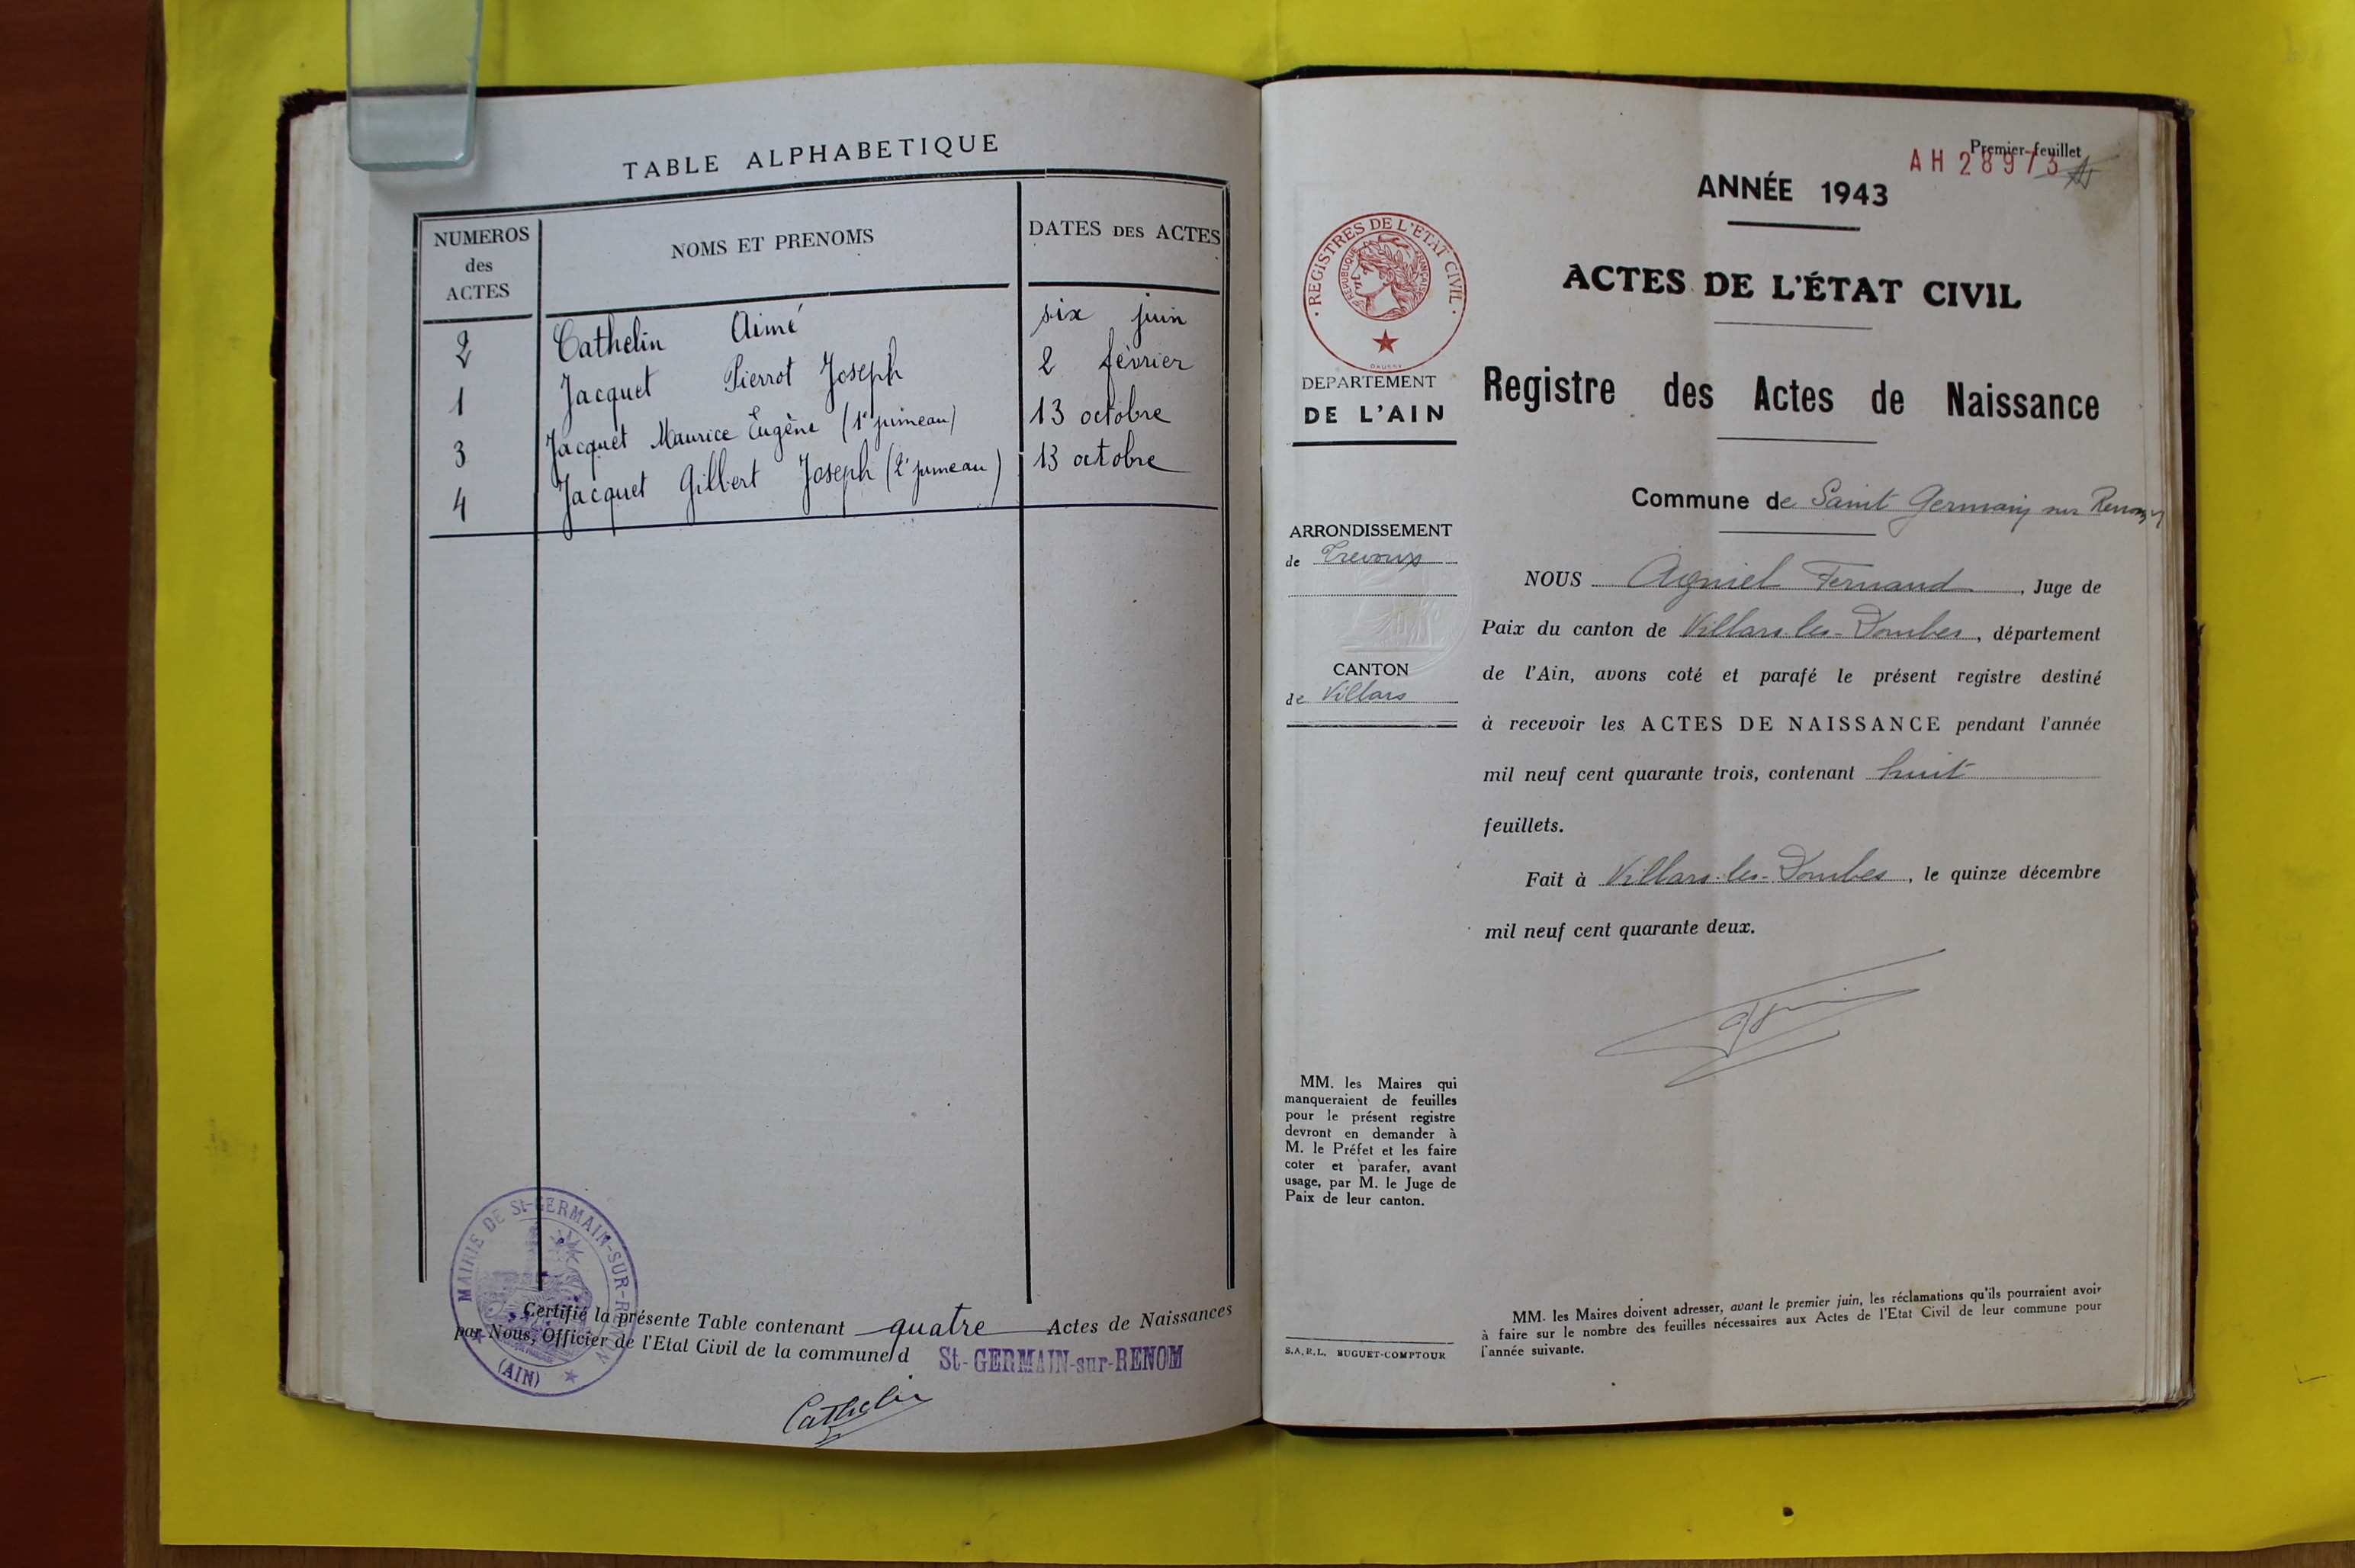 TABLE ALPHABETIQUE
NUMEROS des ACTES
NOMS ET PRENOMS
DATES DES ACTES
2 Cathelin Aimé six juin
1 Jacquet Pierrot Joseph 2 février
3 Jacquet Maurice Eugène (1r jumeau) 13 octobre
4 Jacquet Gilbert Joseph (2e jumeau) 13 octobre
MAIRIE DE St-GERMAIN-SUR-RENON
(AIN)
Certifié la présente Table contenant quatre Actes de Naissances
par Nous, Officier de l'Etat Civil de la commune d St-GERMAIN-sur-RENOM
Cathelin
Premier feuillet
AH 28973
ANNÉE 1943
ACTES DE L'ÉTAT CIVIL
REGISTRES DE L'ETAT CIVIL
REPUBLIQUE FRANÇAISE
DAUSSY
DEPARTEMENT
DE L'AIN
Registre des Actes de Naissance
Commune de Saint Germain sur Renon
ARRONDISSEMENT
de Trevoux
CANTON
de Villars
NOUS Agniel Fernand, Juge de
Paix du canton de Villars-les-Dombes, département
de l'Ain, avons coté et parafé le présent registre destiné
à recevoir les ACTES DE NAISSANCE pendant l'année
mil neuf cent quarante trois, contenant huit
feuillets.
Fait à Villars-les-Dombes, le quinze décembre
mil neuf cent quarante deux.
MM. les Maires qui
manqueraient de feuilles
pour le présent registre
devront en demander à
M. le Préfet et les faire
coter et parafer, avant
usage, par M. le Juge de
Paix de leur canton.
S.A.R.L. BUGUET-COMPTOUR
MM. les Maires doivent adresser, avant le premier juin, les réclamations qu'ils pourraient avoir
à faire sur le nombre des feuilles nécessaires aux Actes de l'Etat Civil de leur commune pour
l'année suivante.